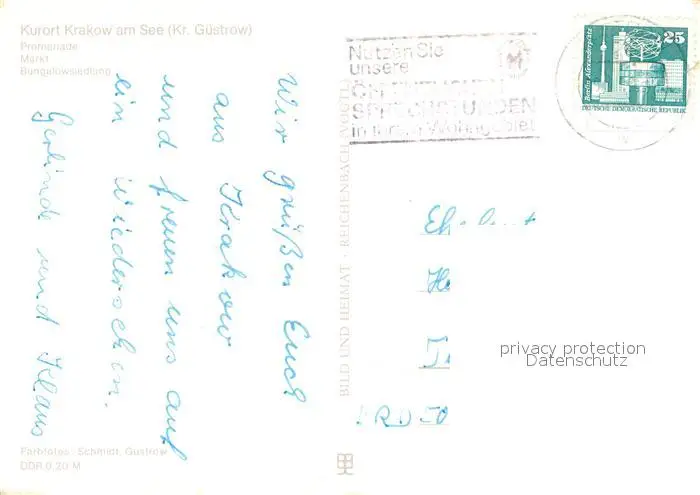 Kurort Krakow am See (Kr. Güstrow)
Promenade
Markt
Bungalowsiedlung
Wir grüßen Euch
aus Krakow
und freuen uns auf
ein Wiedersehen.
Gerlinde und Klaus
Farbfotos: Schmidt, Güstrow
DDR 0,20 M
BILD UND HEIMAT · REICHENBACH
Nutzen Sie
unsere
ÖFFENTLICHEN
SPRECHSTUNDEN
in Ihrem Wohngebiet
25
Berlin, Alexanderplatz
DEUTSCHE DEMOKRATISCHE REPUBLIK
privacy protection
Datenschutz